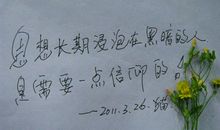 思想长期浸泡在黑暗的人
是需要一点信仰的
——2011.3.26.猫